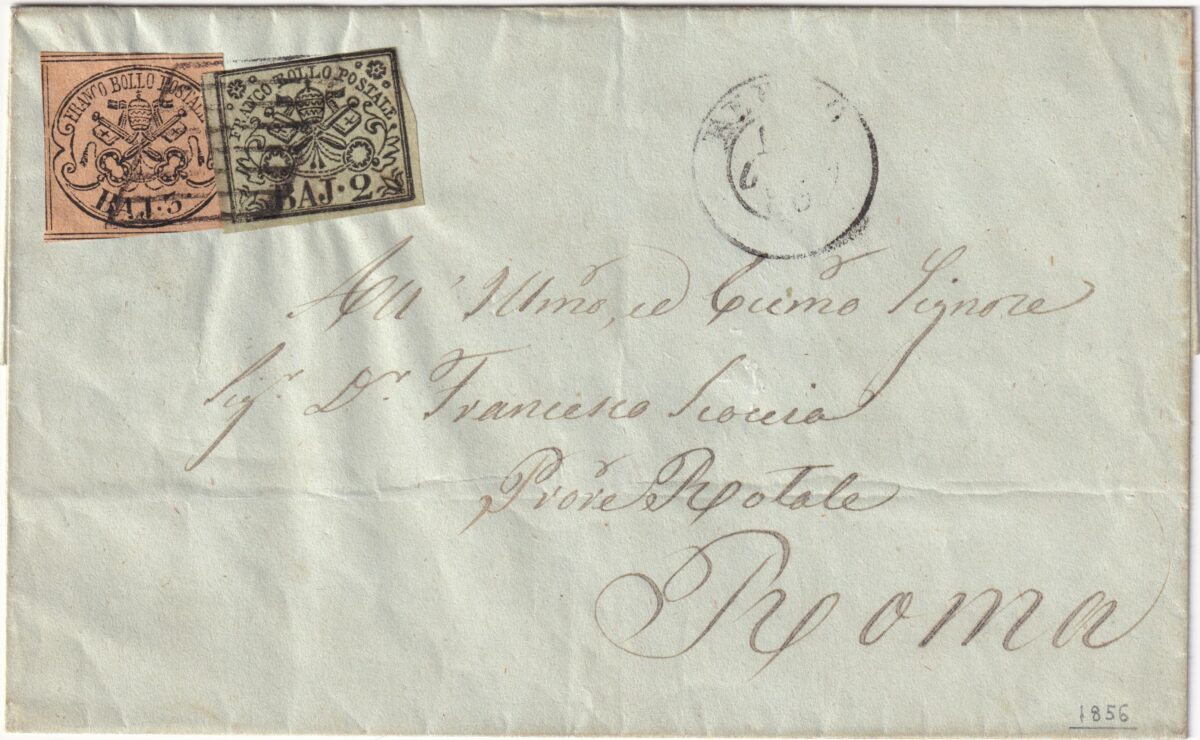 FRANCO BOLLO POSTALE
BAJ. 3
FRANCO BOLLO POSTALE
BAJ. 2
All' Illmo, ed Eccmo Signore
Sigr. Dr. Francesco Scoccia
Prore Rotale
Roma
1856